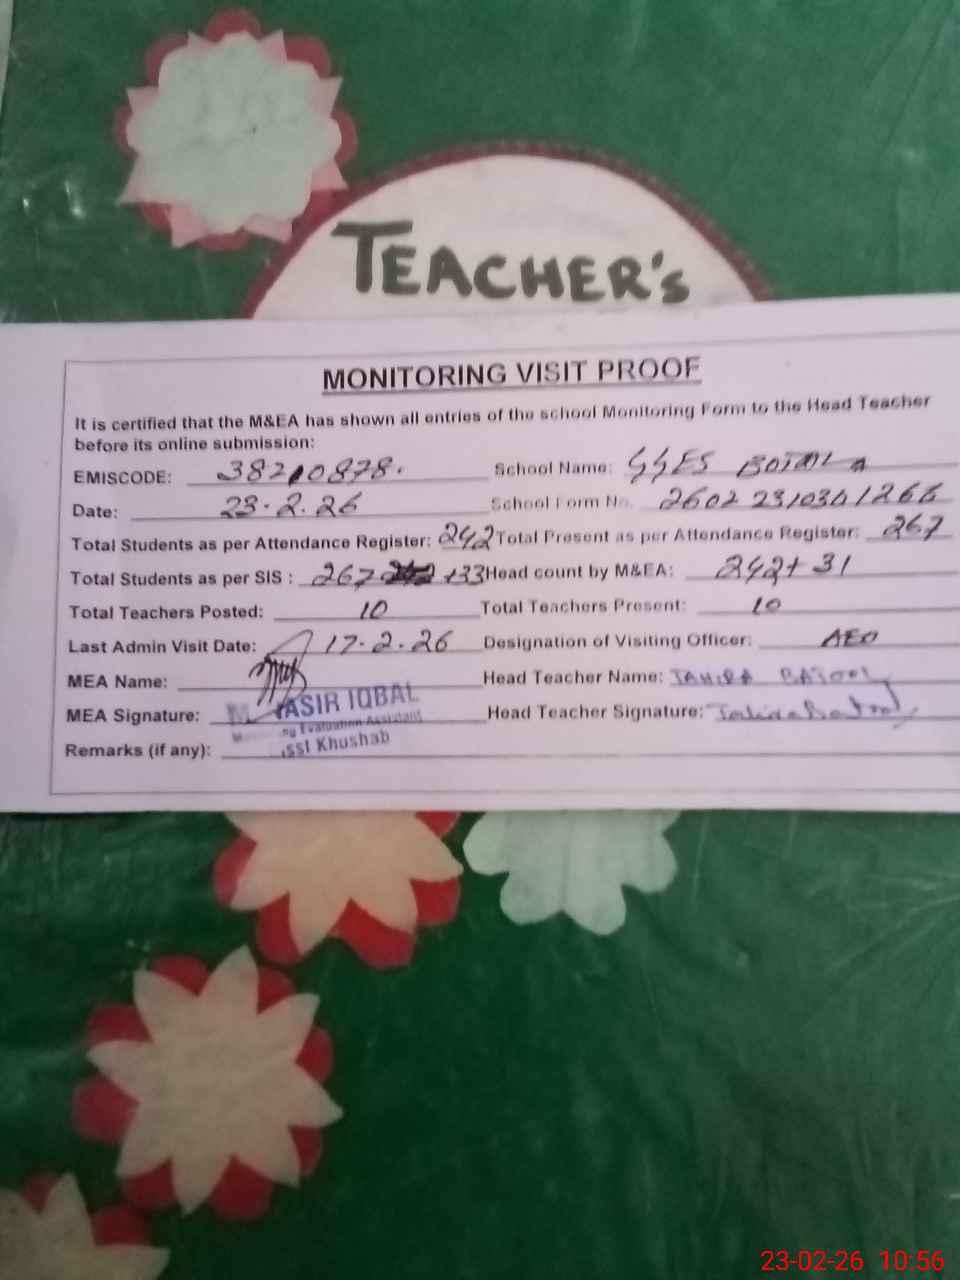 TEACHER's
MONITORING VISIT PROOF
It is certified that the M&EA has shown all entries of the school Monitoring Form to the Head Teacher
before its online submission:
EMISCODE: 38210878. School Name: GGES BOTALA
Date: 23.2.26 School Form No. 2602231030
Total Students as per Attendance Register: 242 Total Present as per Attendance Register: 267
Total Students as per SIS : 267 +33 Head count by M&EA: 242+31
Total Teachers Posted: 10 Total Teachers Present: 10
Last Admin Visit Date: 17.2.26 Designation of Visiting Officer: AEO
MEA Name: Head Teacher Name: TAHIRA BATOOL
MEA Signature: YASIR IQBAL Head Teacher Signature: Tahira Batool
Evaluation Assistant
Remarks (if any): Khushab
23-02-26 10:56